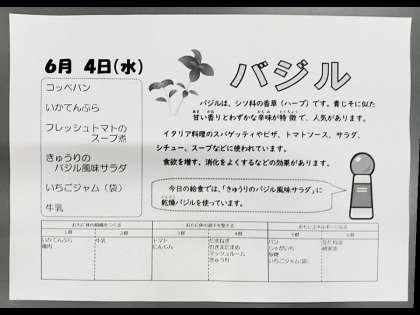 6月 4日(水)
コッペパン
いかてんぷら
フレッシュトマトの
スープ煮
きゅうりの
バジル風味サラダ
いちごジャム(袋)
牛乳
バジル
バジルは、シソ科の香草(ハーブ)です。青じそに似た
甘い香りとわずかな辛味が特徴で、人気があります。
イタリア料理のスパゲッティやピザ、トマトソース、サラダ、
シチュー、スープなどに使われています。
食欲を増す、消化をよくするなどの効果があります。
今日の給食では、「きゅうりのバジル風味サラダ」に
乾燥バジルを使っています。
おもに体の組織をつくる
おもに体の調子を整える
おもにエネルギーになる
1群 2群 3群 4群 5群 6群
いかてんぷら
鶏肉
牛乳
トマト
にんじん
たまねぎ
マッシュルーム
きゅうり
パン
じゃがいも
砂糖
いちごジャム(袋)